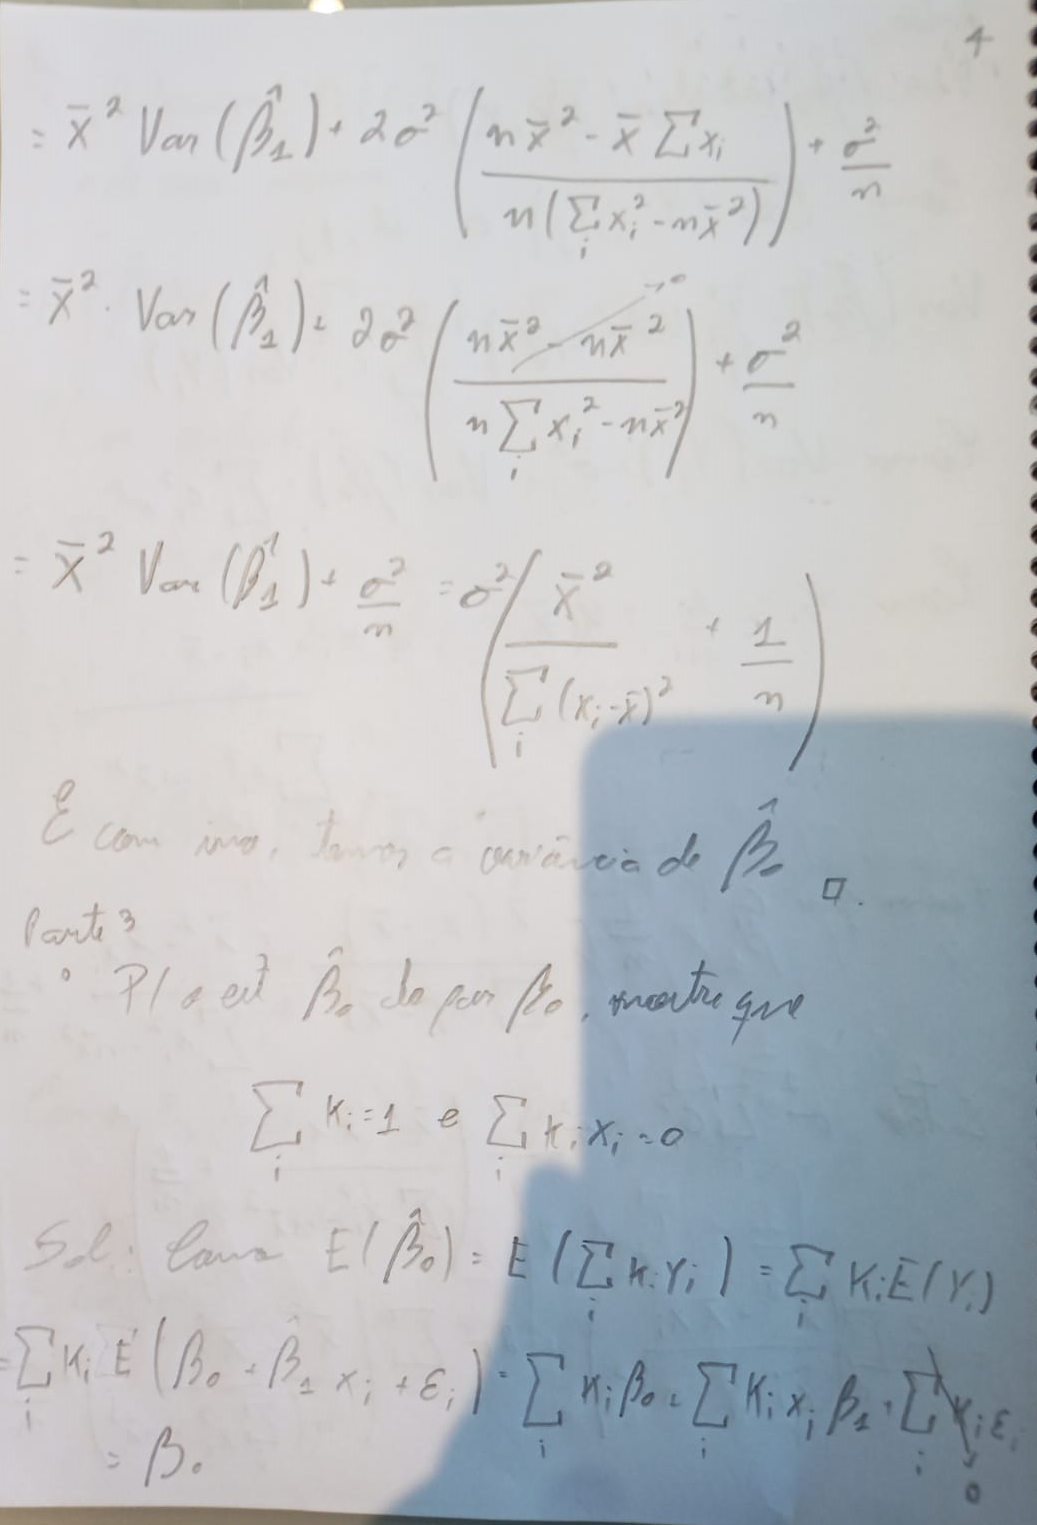 4
= x̄² Var(β̂₁) + 2σ² ( (n x̄² - x̄ Σxᵢ) / (n(Σᵢ xᵢ² - n x̄²)) ) + σ²/n
= x̄² · Var(β̂₁) + 2σ² ( (n x̄² - n x̄²) / (n Σᵢ xᵢ² - n x̄²) ) → 0 + σ²/n
= x̄² Var(β̂₁) + σ²/n = σ² ( x̄² / Σᵢ (xᵢ - x̄)² + 1/n )
E com isso, temos a variância de β̂₀ □.
Parte 3
° P/ o est β̂₀ de par β₀, mostre que
Σᵢ Kᵢ = 1 e Σᵢ Kᵢ xᵢ = 0
Sol: Como E(β̂₀) = E(Σᵢ Kᵢ Yᵢ) = Σᵢ Kᵢ E(Yᵢ)
= Σᵢ Kᵢ E(β₀ + β₁ xᵢ + εᵢ) = Σᵢ Kᵢ β₀ + Σᵢ Kᵢ xᵢ β₁ + Σᵢ Kᵢ εᵢ → 0
= β₀